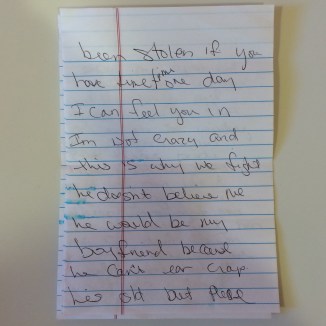 been stolen if you
have time from one day
I can feel you in
I'm not crazy and
this is why we fight
he doesn't believe me
he would be my
boyfriend because
he can't ear crap
he's old but please